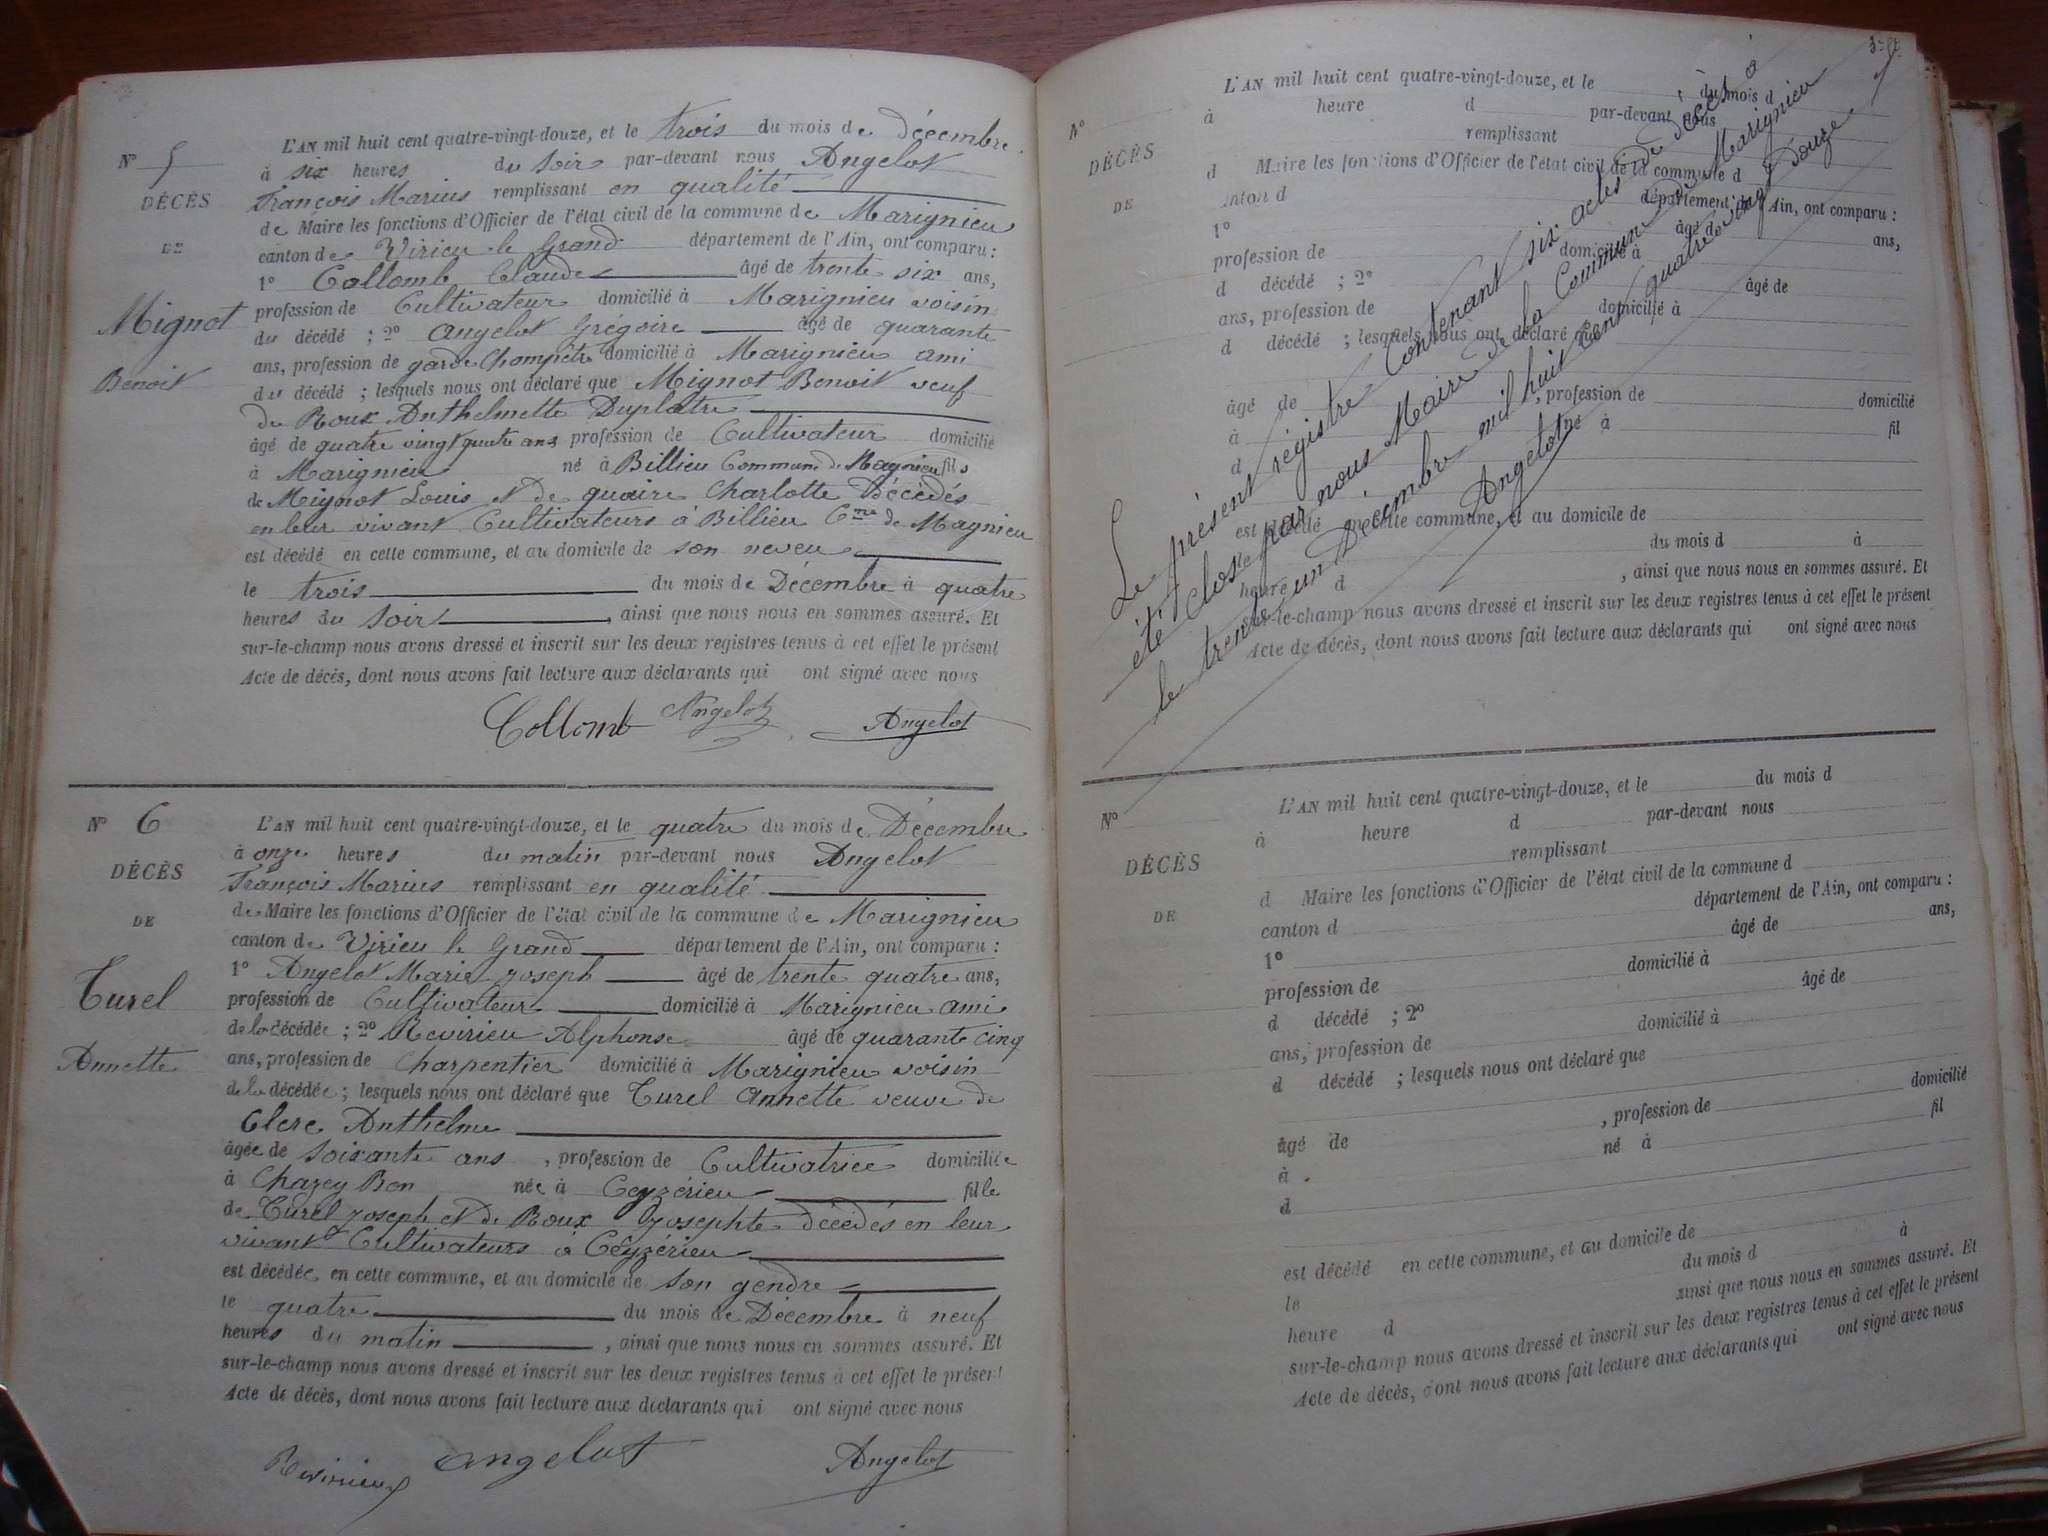 N° 5
DÉCÈS
DE
Mignot
Benoit
L'AN mil huit cent quatre-vingt-douze, et le trois du mois de décembre
à six heures du soir par-devant nous Angelot
François Marius remplissant en qualité
de Maire les fonctions d'Officier de l'état civil de la commune de Marignieu
canton de Virieu le Grand département de l'Ain, ont comparu :
1° Collomb Claude âgé de trente six ans,
profession de Cultivateur domicilié à Marignieu voisin
du décédé ; 2° Angelot Grégoire âgé de quarante
ans, profession de garde Champêtre domicilié à Marignieu ami
du décédé ; lesquels nous ont déclaré que Mignot Benoit veuf
de Roux Anthelmette Duplatre
âgé de quatre vingt quatre ans profession de Cultivateur domicilié
à Marignieu né à Billieu Commune de Magnieu fils
de Mignot Louis et de quaire Charlotte Décédés
en leur vivant Cultivateurs à Billieu Cne de Magnieu
est décédé en cette commune, et au domicile de son neveu
le trois du mois de Décembre à quatre
heures du soir , ainsi que nous nous en sommes assuré. Et
sur-le-champ nous avons dressé et inscrit sur les deux registres tenus à cet effet le présent
Acte de décès, dont nous avons fait lecture aux déclarants qui ont signé avec nous
Collomb Angelot Angelot
N° 6
DÉCÈS
DE
Turel
Annette
L'AN mil huit cent quatre-vingt-douze, et le quatre du mois de Décembre
à onze heures du matin par-devant nous Angelot
François Marius remplissant en qualité
de Maire les fonctions d'Officier de l'état civil de la commune de Marignieu
canton de Virieu le Grand département de l'Ain, ont comparu :
1° Angelot Marie Joseph âgé de trente quatre ans,
profession de Cultivateur domicilié à Marignieu ami
de la décédée ; 2° Revirieu Alphonse âgé de quarante cinq
ans, profession de Charpentier domicilié à Marignieu voisin
de la décédée ; lesquels nous ont déclaré que Turel Annette veuve de
Clerc Anthelme
âgée de soixante ans , profession de Cultivatrice domiciliée
à Chazey Bon née à Ceyzérieu fille
de Turel Joseph et de Roux Josephte décédés en leur
vivant Cultivateurs à Ceyzérieu
est décédée en cette commune, et au domicile de son gendre
le quatre du mois de Décembre à neuf
heures du matin , ainsi que nous nous en sommes assuré. Et
sur-le-champ nous avons dressé et inscrit sur les deux registres tenus à cet effet le présent
Acte de décès, dont nous avons fait lecture aux déclarants qui ont signé avec nous
Revirieu Angelot Angelot
N°
DÉCÈS
DE
L'AN mil huit cent quatre-vingt-douze, et le du mois d
à heure d par-devant nous
remplissant
d Maire les fonctions d'Officier de l'état civil de la commune d
canton d département de l'Ain, ont comparu :
1° âgé de ans,
profession de domicilié à
d décédé ; 2° âgé de
ans, profession de domicilié à
d décédé ; lesquels nous ont déclaré que
âgé de , profession de domicilié
à né à fil
d
est décédé en cette commune, et au domicile de
le du mois d à
heure d , ainsi que nous nous en sommes assuré. Et
sur-le-champ nous avons dressé et inscrit sur les deux registres tenus à cet effet le présent
Acte de décès, dont nous avons fait lecture aux déclarants qui ont signé avec nous
Le présent régistre contenant six actes de décès a
été clos par nous Maire de la Commune de Marignieu
le trente un Décembre mil huit cent quatre vingt douze
Angelot
N°
DÉCÈS
DE
L'AN mil huit cent quatre-vingt-douze, et le du mois d
à heure d par-devant nous
remplissant
d Maire les fonctions d'Officier de l'état civil de la commune d
canton d département de l'Ain, ont comparu :
1° âgé de ans,
profession de domicilié à
d décédé ; 2° âgé de
ans, profession de domicilié à
d décédé ; lesquels nous ont déclaré que
âgé de , profession de domicilié
à né à fil
d
est décédé en cette commune, et au domicile de
le du mois d à
heure d ainsi que nous nous en sommes assuré. Et
sur-le-champ nous avons dressé et inscrit sur les deux registres tenus à cet effet le présent
Acte de décès, dont nous avons fait lecture aux déclarants qui ont signé avec nous